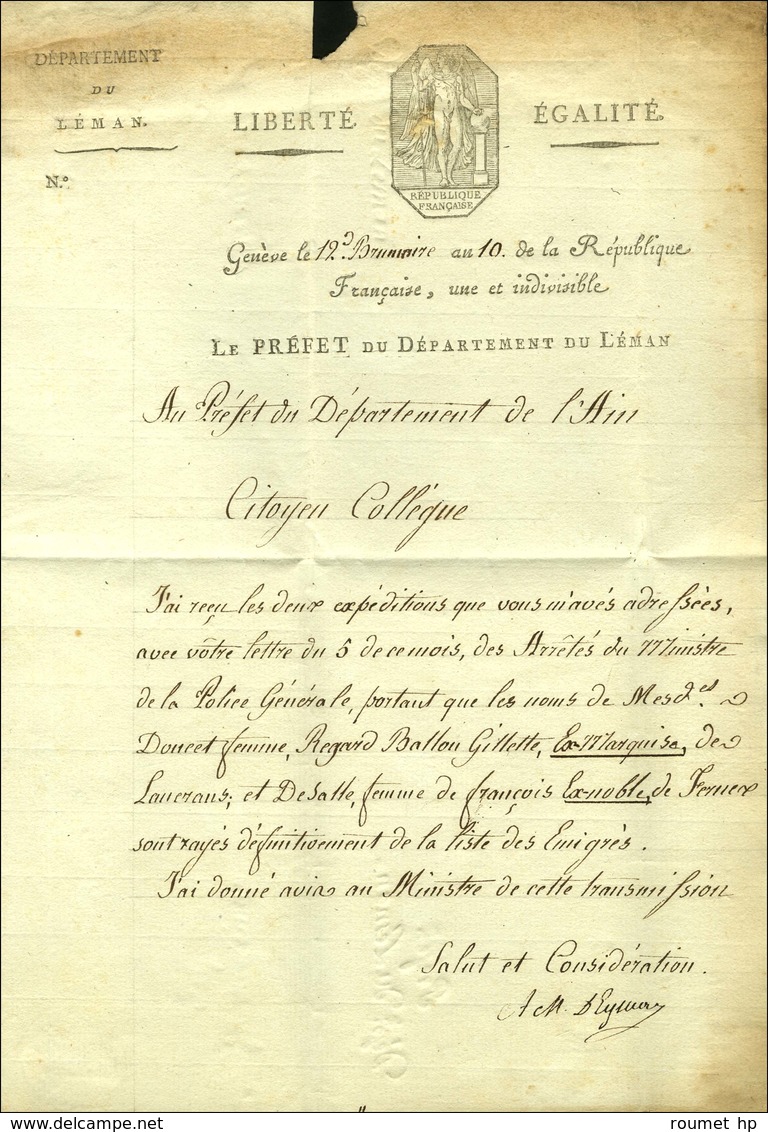 DÉPARTEMENT
DU
LÉMAN.
LIBERTÉ
ÉGALITÉ.
RÉPUBLIQUE
FRANÇAISE
N.º
Genève le 12 Brumaire an 10. de la République
Française, une et indivisible
LE PRÉFET DU DÉPARTEMENT DU LÉMAN
Au Préfet du Département de l'Ain
Citoyen Collégue
J'ai reçu les deux expéditions que vous m'avés adressées,
avec vôtre lettre du 5 de ce mois, des Arrêtés du Ministre
de la Police Générale, portant que les noms de Mesd.es
Doucet femme, Regard Ballon Gillette, Ex-Marquise, de
Lucrans; et Desalle, femme de françois Ex-noble, de Fernex
sont rayés définitivement de la liste des Emigrés.
J'ai donné avis au Ministre de cette transmission
Salut et Considération.
A M. D'Eymar
delcampe.net
roumet hp